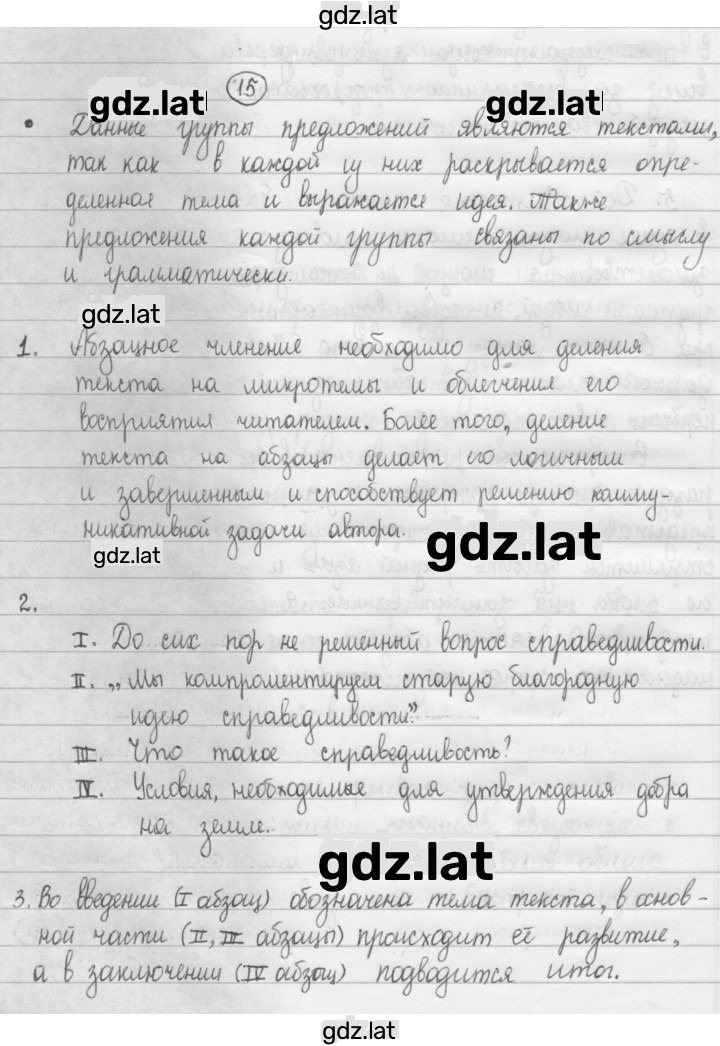 gdz.lat
15
gdz.lat gdz.lat
• Данные группы предложений являются текстами,
так как в каждой из них раскрывается опре-
деленная тема и выражается идея. Также
предложения каждой группы связаны по смыслу
и грамматически.
gdz.lat
1. Абзацное членение необходимо для деления
текста на микротемы и облегчения его
восприятия читателем. Более того, деление
текста на абзацы делает его логичным
и завершенным и способствует решению комму-
никативной задачи автора.
gdz.lat gdz.lat
2.
I. До сих пор не решенный вопрос справедливости.
II. „Мы компроментируем старую благородную
идею справедливости".
III. Что такое справедливость?
IV. Условия, необходимые для утверждения добра
на земле.
gdz.lat
3. Во введении (I абзац) обозначена тема текста, в основ-
ной части (II, III абзацы) происходит её развитие,
а в заключении (IV абзац) подводится итог.
gdz.lat